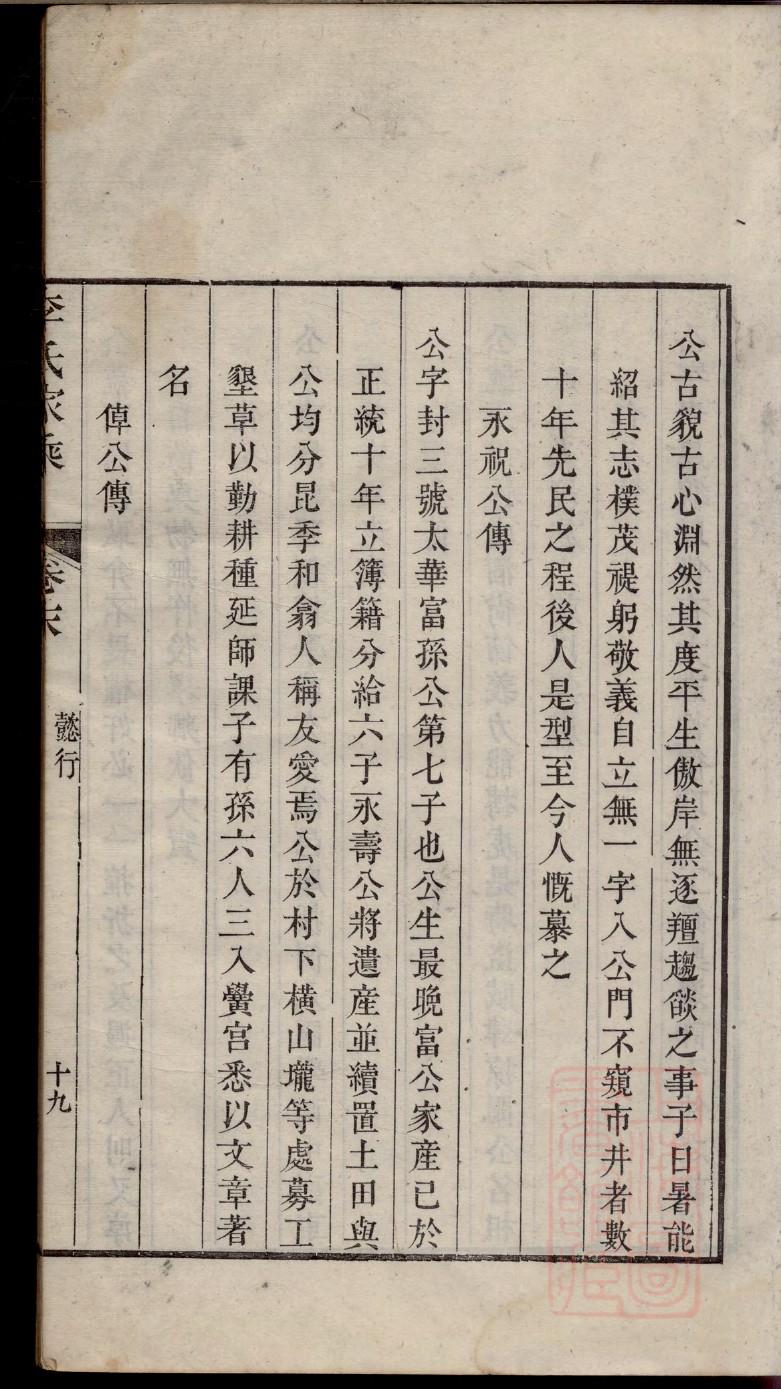 公古貌古心淵然其度平生傲岸無逐羶趨燄之事子日暑能
紹其志樸茂禔躬敬義自立無一字入公門不窺市井者數
十年先民之程後人是型至今人慨慕之
永祝公傳
公字封三號太華富孫公第七子也公生最晚富公家産已於
正統十年立簿籍分給六子永壽公將遺産並續置土田與
公均分昆季和翕人稱友愛焉公於村下橫山壠等處募工
墾草以勤耕種延師課子有孫六人三入黌宮悉以文章著
名
倬公傳
李氏家乘 卷末 懿行 十九